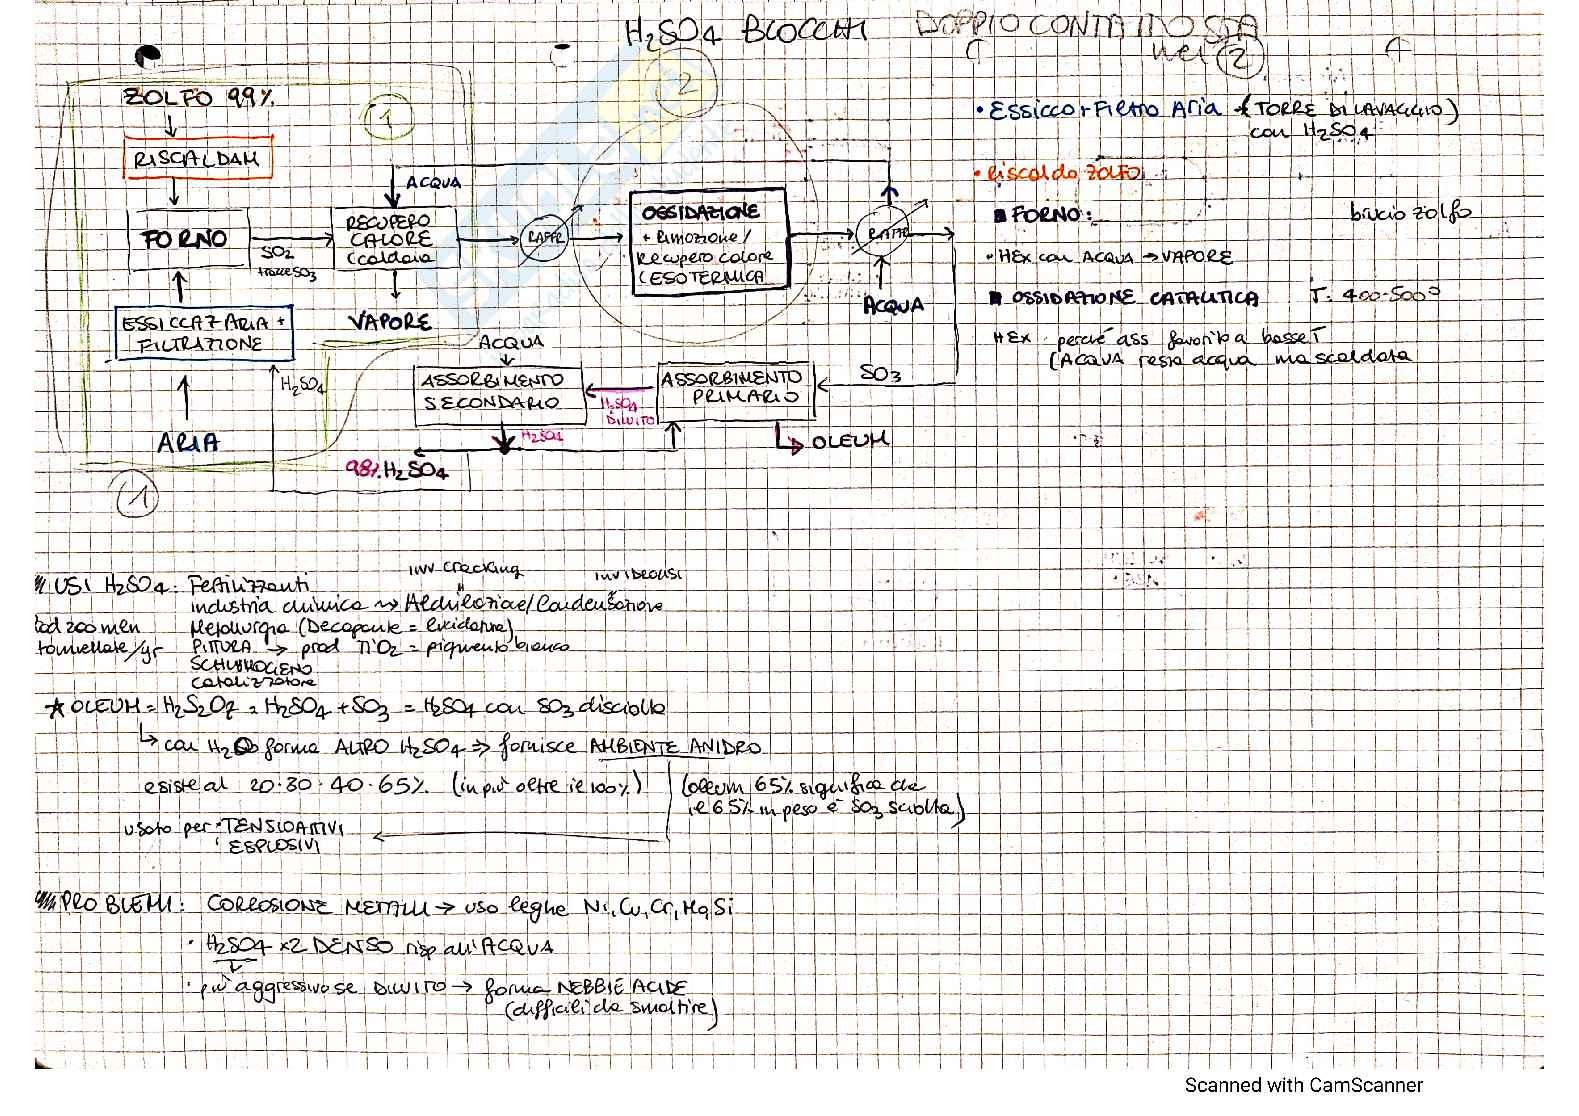 H₂SO₄ BLOCCHI DOPPIO CONTATTO STA
nel 2
ZOLFO 99%
1
2
RISCALDAM
ACQUA
FORNO
SO₂
tracce SO₃
RECUPERO
CALORE
(caldaia
RAFFR
OSSIDAZIONE
+ Rimozione/
Recupero calore
(ESOTERMICA
RAFFR
ESSICCAZ ARIA +
FILTRAZIONE
VAPORE
ACQUA
ACQUA
H₂SO₄
ASSORBIMENTO
SECONDARIO
H₂SO₄
DILUITO
ASSORBIMENTO
PRIMARIO
SO₃
ARIA
H₂SO₄
OLEUM
98% H₂SO₄
1
• Essicco + Filtro Aria (TORRE DI LAVAGGIO)
con H₂SO₄
• Riscaldo ZOLFO
■ FORNO: brucio zolfo
• HEx con ACQUA → VAPORE
■ OSSIDAZIONE CATALITICA T: 400-500°
HEx: perché ass favorito a basse T
(ACQUA resta acqua ma scaldata
inv cracking
USI H₂SO₄: Fertilizzanti
industria chimica → Alchilazione/Condensazione
prod 200 mln Metallurgia (Decapante =
tonnellate/yr PITTURA → prod TiO₂ = pigmento bianco
catalizzatore
★ OLEUM = H₂S₂O₇ = H₂SO₄ + SO₃ = H₂SO₄ con SO₃ disciolta
↳ con H₂O forma ALTRO H₂SO₄ ⇒ fornisce AMBIENTE ANIDRO
esiste al 20·30·40·65% (in più oltre il 100%) (oleum 65% significa che
il 65% in peso è SO₃ sciolta)
usato per • TENSIOATTIVI
• ESPLOSIVI
PROBLEMI: CORROSIONE METALLI → uso leghe Ni, Cu, Cr, Mg, Si
• H₂SO₄ x2 DENSO risp all'ACQUA
• più aggressivo se DILUITO → forma NEBBIE ACIDE
(difficili da smaltire)
Scanned with CamScanner